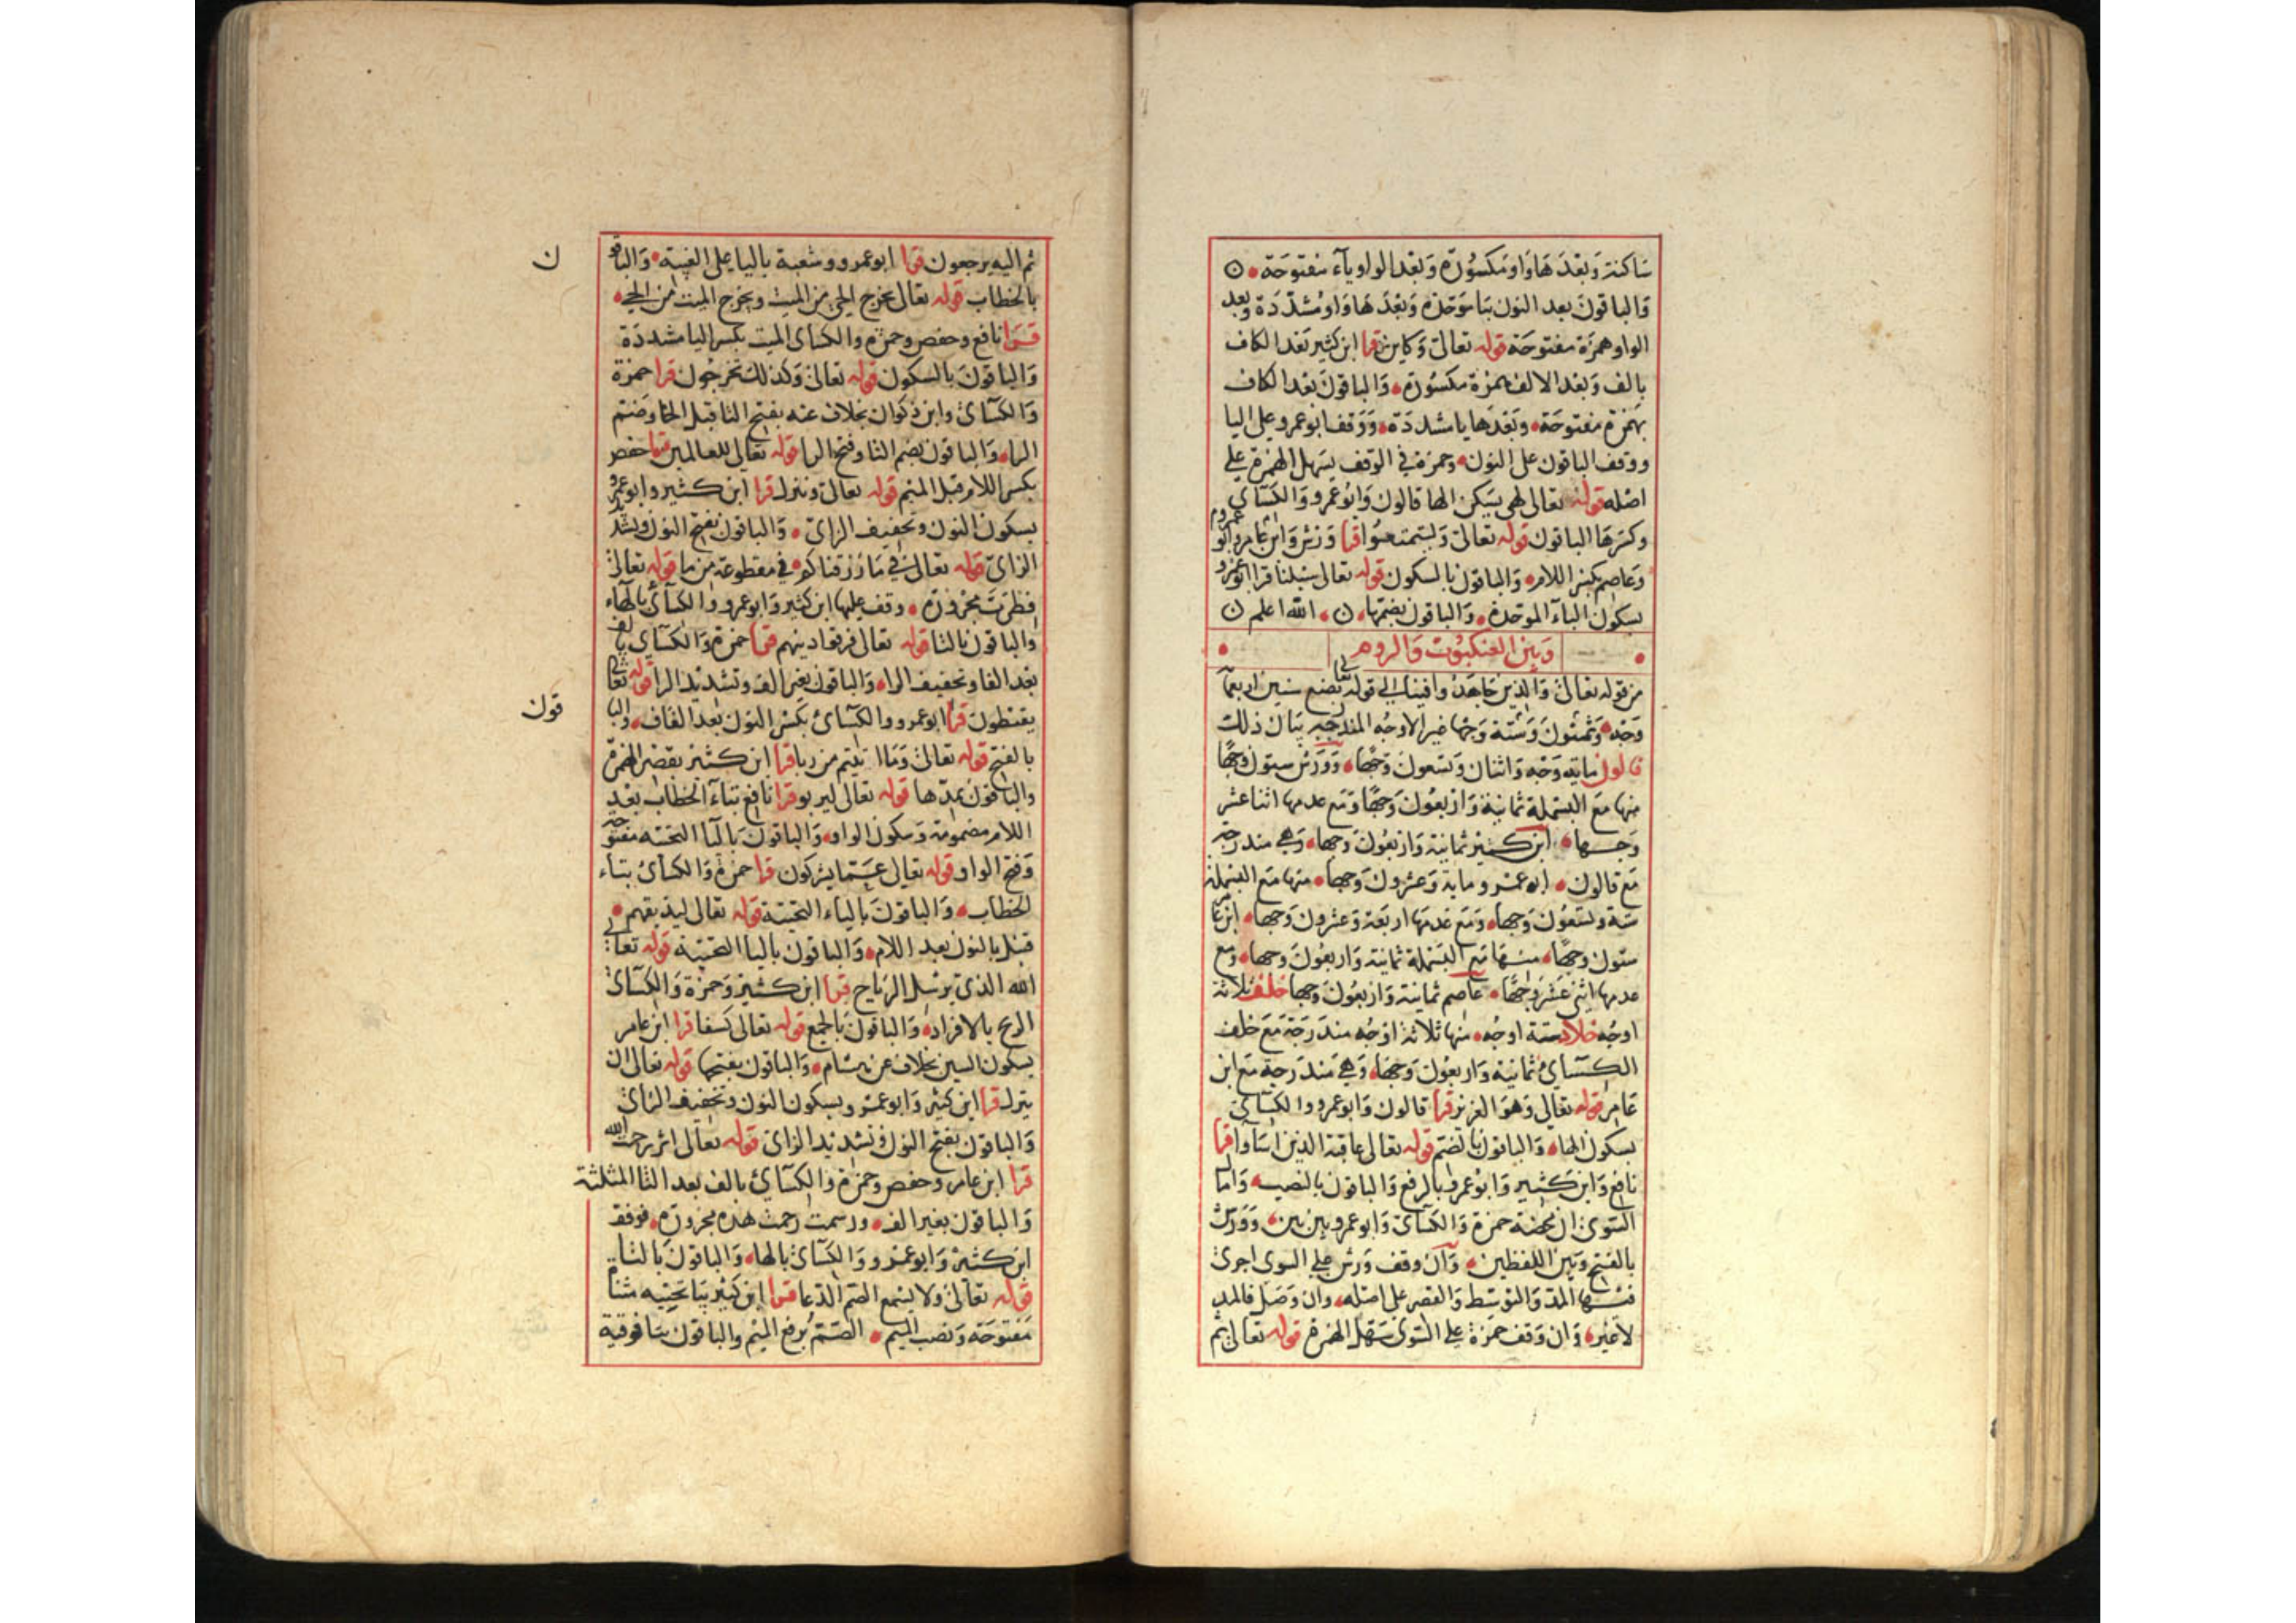 ساكنة وَبَعْدَهَا وَاو مَكسُورَة وَبَعْد الواو ياء مفتوحَة ن
وَالباقونَ بعد النون بَا مُوَحدَة وَبَعْدَهَا وَاو مُشدّدَة وَبعد
الواو همزَة مفتوحَة قوله تعالى وَكاين قرا ابن كثير بَعْد الكاف
بالف وَبَعْد الالف همزة مكسُورَة وَالباقونَ بَعْد الكاف
بهَمزة مفتوحَة وَبَعْدَها يا مشددَة وَوَقف ابو عمرو على اليا
ووقف الباقون على النون وحمزة في الوقف يسهل الهمزة على
اصْله قوله تعالى لهى يسَكن الها قالون وَابُوعمرو وَالكسَاى
وكسَرهَا الباقون قوله تعالى وَليتمتعُوا قرا وَرْش وَابن عامر وابو عمرو
وَعَاصم بكسر اللام وَالباقون بالسكون قوله تعالى سُبلنا قرا ابو عمرو
بسكون البَاء الموَحدة وَالباقون بضمّها ن الله اعلم ن
وَبَين العنكبُوت وَالروم
من قوله تعالى وَالذين جَاهَدُوا فينا الى قوله تعالى بضع سنين اربعماية
وَجْه وَثمَنُون وَسِتّة وَجْهًا غير الاوجُه المندرجة بيَان ذلك
قالون ماية وَجْه وَاثنان وَتسعونَ وَجْهًا وَوَرْش ستون وجهًا
منها مَعَ البَسْملة ثمانية وَارْبعُونَ وَجهًا وَمَع عدمها اثنا عشر
وَجها ابن كثير ثمانية وَارْبَعُونَ وجها وَهى مندرجة
مَع قالون ابو عمرو ماية وَعشرون وَجها منها مَع البَسْملة
ستة وتسعُون وَجها وَمَع عَدمها اربَعَة وَعشرون وَجها ابن عامر
ستون وجهًا منها مَع البَسْملة ثمانية وَاربَعُونَ وجها وَمَع
عدمها اثنى عَشَر وَجهًا عاصم ثمانية وَارْبعُونَ وَجها خلف ثلاثة
اوجُه خلاد ستة اوجُه منها ثلاثة اوْجُه مندَرجَة مَعَ خلف
الكسَاىُ ثمانية وَاربعُونَ وَجهًا وَهى مَندَرجة مَعَ ابن
عَامر قوله تعالى وَهوَ العزيز قرا قالون وَابوعمرو والكسَاى
بسكون الها وَالباقون بالضم قوله تعالى عاقبة الذين اسَاوا قرا
نافع وَابن كثير وَابُوعمرو بالرفع وَالباقون بالنصب وَاما
السّوى امَال محضة حمزة وَالكسَائ وَابوعمرو بين بين وَوَرش
بالفتح وَبَين اللفظين وَان وقف وَرْش على السوى اجرى
فيها المدّ وَالتوسّط وَالقصر على اصْله وان وَصَل فالمد
لا غير وَان وَقف حَمزة على السّوى سَهّل الهمزة قوله تعالى ثم
ثم اليه يرجعون قرا ابوعمرو وشعبة باليا على الغيبة وَالباقون
بالخطاب قوله تعالى يخرج الحى من الميت ويخرج الميت من الحى
قرا نافع وحفص وحمزة والكساى الميت بكسر اليا مشددَة
وَالباقونَ بالسكون قوله تعالى وَكذلك تخرجُون قرا حمزة
وَالكسَائ وابن ذكوان بخلاف عنه بفتح التا قبل الخا وضم
الرا وَالباقون بضم التا وفتح الرا قوله تعالى للعالمين قرا حفص
بكسر اللام قبل الميم قوله تعالى وَينزل قرا ابن كثير وابو عمرو
بسكون النون وتخفيف الزاى وَالباقون بفتح النون وبشد
الزاى قوله تعالى في مَا رَزقناكم في مقطوعة من ما قوله تعالى
فطرَت مجرورَة وقف عليها ابن كثير وَابوعمرو والكسَائ بالهَاء
والباقون بالتا قوله تعالى فرقوا دينهم قرا حمزة وَالكسَاى بالف
بَعد الفا وتخفيف الرا وَالباقون بغير الف وتشديد الرا قوله تعالى
يقنطون قرأ ابوعمرو والكسَائ بكسْر النون بَعد القَاف والباقون
بالفتح قوله تعالى وَمَا اتيتم من ربا قرا ابن كثير بقصْر الهمزة
والباقون بمدّها قوله تعالى ليربو قرا نافع بتاء الخطاب بعْد
اللام مضمومة وَسكون الواو وَالباقون بَاليَا التحتية مفتوحة
وَفتح الواو قوله تعالى عَمَّا يشركون قرا حمزة وَالكسائ بتاء
الخطاب وَالباقونَ بالياء التحتية قوله تعالى ليذيقهم
قنبل بالنون بعد اللام وَالباقون باليا التحتية قوله تعالى
الله الذى يُرسل الرياح قرا ابن كثير وَحمزة وَالكسَائ
الريح بالافراد وَالباقون بَالجمع قوله تعالى كسفا قرا ابن عامر
بسكون السين بخلاف عن هشام وَالباقون بفتحها قوله تعالى ان
ينزل قرا ابن كثير وَابوعمرو بسكون النون وتخفيف الزاى
وَالباقون بفتح النون وَتشديد الزاى قوله تعالى اثر رحمت الله
قرا ابن عامر وحفص وحمزة وَالكسَائ بالف بعد الثا المثلثة
وَالباقون بغير الف ورسمت رحمت هذه مجرورَة فوقف
ابن كثير وَابوعمرو وَالكسَائ بالها وَالباقونَ بالتا
قوله تعالى ولا يسمع الصمّ الدّعا قرا ابن كثير بيَا تحتيه مثناة
مَفتوحَة وَنصب الميم الصّمُّ برفع الميم والباقون بتا فوقية
ن
قون